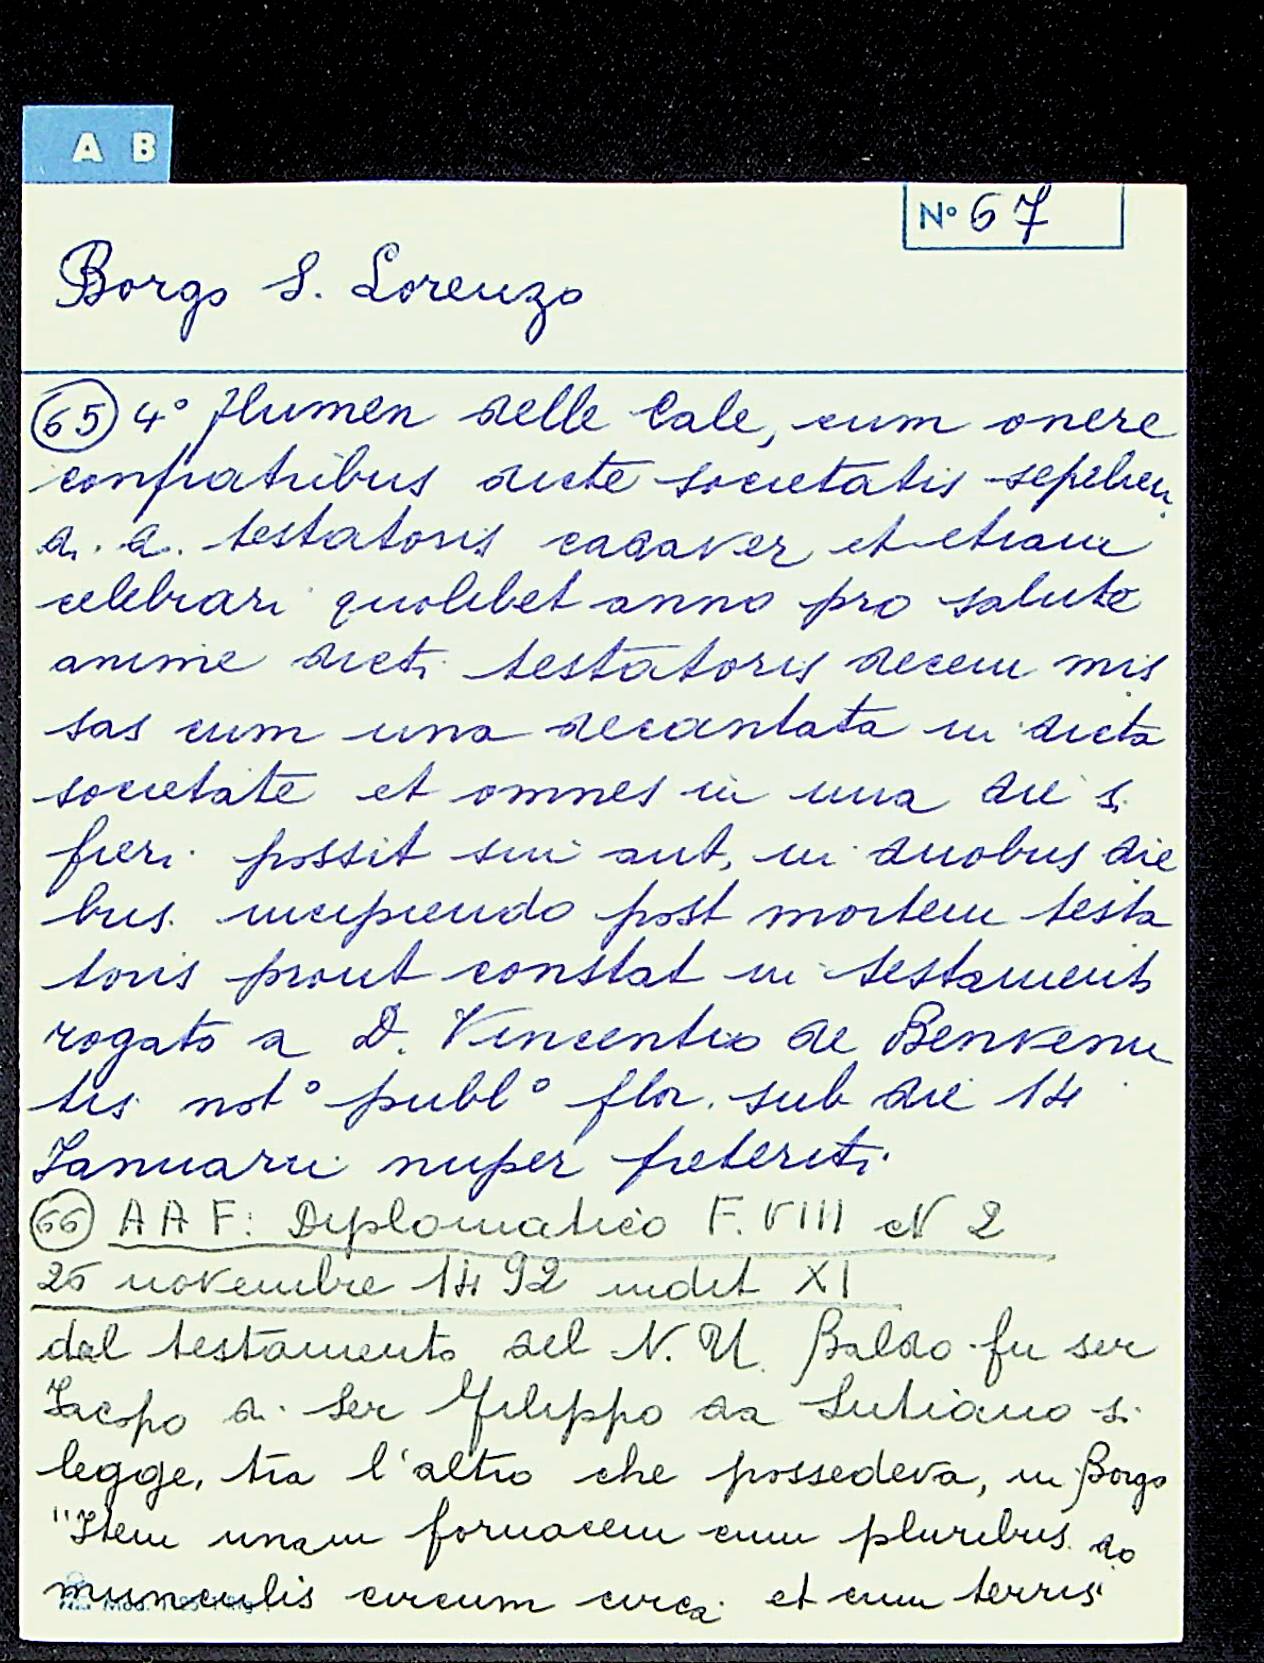 A B
N° 67
Borgo S. Lorenzo
65 4° flumen delle Cale, cum onere
confratribus dicte societatis sepelien
d. d. testatoris cadaver et etiam
celebrari quolibet anno pro salute
anime dicti testatoris decem mis
sas cum una decantata in dicta
societate et omnes in una die si
fieri possit sin aut, in duobus die
bus incipiendo post mortem testa
toris prout constat in testamento
rogato a D. Vincentio de Benvenu
tis not° publ° flor. sub die 14
Januarii nuper preteriti.
66 AAF: Diplomatico F. VIII N 2
25 novembre 1492 indit XI
dal testamento del N. U. Baldo fu ser
Jacopo di ser Filippo da Lutiano si
legge, tra l'altro che possedeva, in Borgo
"Item unam fornacem cum pluribus do
munculis circum circa et cum terris